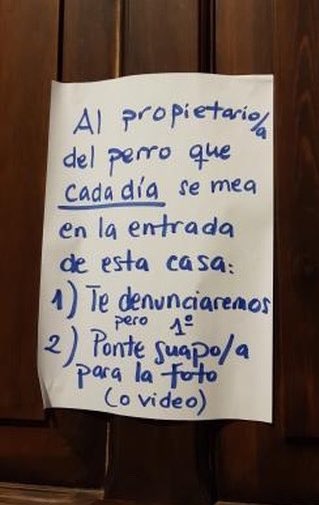 Al propietario/a
del perro que
cada día se mea
en la entrada
de esta casa:
1) Te denunciaremos
pero 1º
2) Ponte guapo/a
para la foto
(o video)